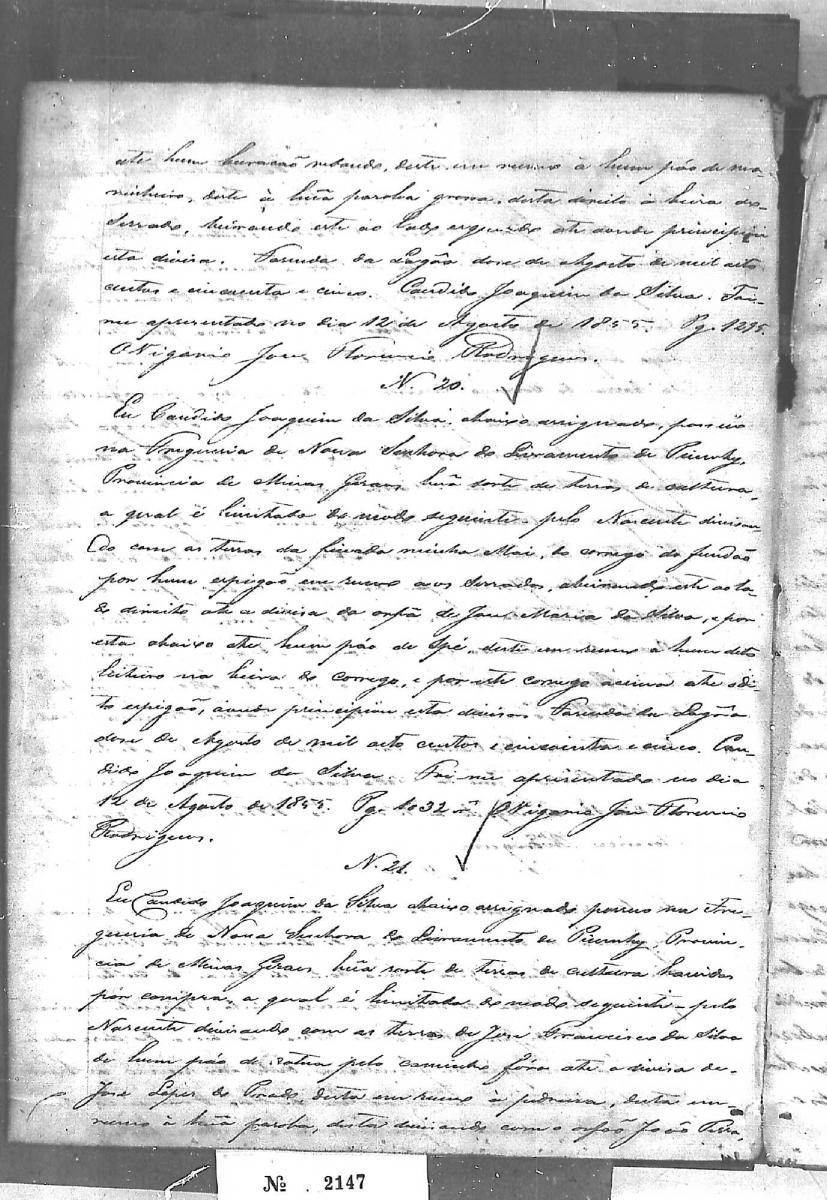 até hum buracão rebaudo, deste em rumo à hum páo de ma-
rinheiro, deste à hũa paroba grossa, desta direito à beira do
Serrado, beirando este ao lado esquerdo até aonde principiou
esta divisa. Fasenda da Lagôa dose de Agosto de mil oito
centos e cincoenta e cinco. Candido Joaquim da Silva. Foi
me apresentado no dia 12 de Agosto de 1855. Pg. 1295.
O Vigario José Florencio Rodrigues.
N. 20.
Eu Candido Joaquim da Silva, abaixo assignado, possúo
na Freguesia de Nossa Senhora do Livramento de Piumhy,
Provincia de Minas Geraes hũa sorte de terras de cultura,
a qual é limitada do modo seguinte - pelo Nascente divisan-
do com as terras da finada minha Mai, do corrego do fundão
por hum espigão em rumo aos Serrados, abeirando este ao la-
do direito até a divisa da orfã de José Maria da Silva, e por
esta abaixo até hum páo de Ipé, deste em rumo a hum dito
leiteiro na beira do corrego, e por este corrego acima até o di-
to espigão, aonde principiou esta divisa. Fasenda da Lagôa
dose de Agosto de mil oito centos e cincoenta e cinco. Can-
dido Joaquim da Silva. Foi me apresentado no dia
12 de Agosto de 1855. Pg. 1032 O Vigario José Florencio
Rodrigues.
N. 21.
Eu Candido Joaquim da Silva Abaixo assignado possuo na Fre-
guesia de Nossa Senhora do Livramento de Piumhy, Provin-
cia de Minas Geraes hũa sorte de terras de cultura havidas
por compra, a qual é limitada do modo seguinte - pelo
Nascente divisando com as terras de José Francisco da Silva
de hum páo de pelo caminho fóra até a divisa de
José Lopes do Prado, desta em rumo à pedreira, desta em
rumo à hũa paroba, desta divisando com o orfão João
Nº 2147